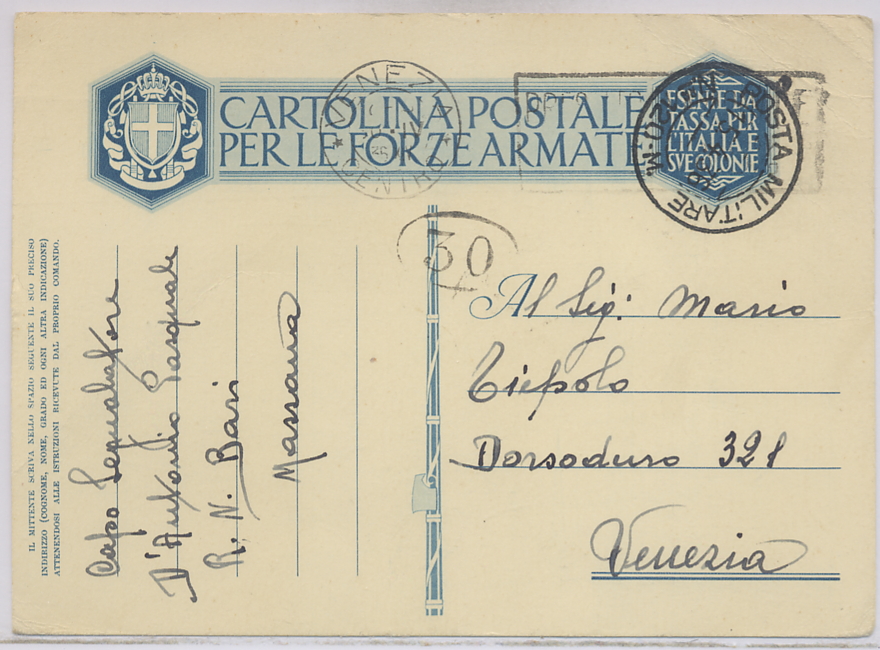 CARTOLINA POSTALE
PER LE FORZE ARMATE
ESENTE DA
TASSA PER
L'ITALIA E
SUE COLONIE
VENEZIA
CENTRO
POSTA MILITARE
30
IL MITTENTE SCRIVA NELLO SPAZIO SEGUENTE IL SUO PRECISO
INDIRIZZO (COGNOME, NOME, GRADO ED OGNI ALTRA INDICAZIONE)
ATTENENDOSI ALLE ISTRUZIONI RICEVUTE DAL PROPRIO COMANDO.
Capo Segnalatore
D'Antonio Pasquale
R. N. Bari
Massaua
Al Sig: Mario
Tiepolo
Dorsoduro 321
Venezia